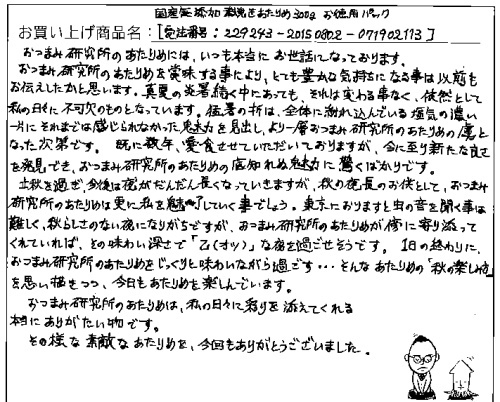 国産無添加 素焼きあたりめ 300g お徳用パック
お買い上げ商品名：[受注番号：229243-20150802-071902113]
おつまみ研究所のあたりめには、いつも本当にお世話になっております。
おつまみ研究所のあたりめを賞味する事により、とても豊かな気持ちになる事は以前も
お伝えしたかと思います。真夏の炎暑続く中にあっても、それは変わる事なく、依然として
私の日々に不可欠のものとなっています。猛暑の折は、全体に紛れ込んでいる塩気の濃い
一片にそれまでは感じられなかった魅力を見出し、より一層おつまみ研究所のあたりめの虜と
なった次第です。既に数年、愛食させていただいておりますが、今に至り新たな良さ
を発見でき、おつまみ研究所のあたりめの底知れぬ魅力に驚くばかりです。
立秋を過ぎ、今後は夜がだんだん長くなっていきますが、秋の夜長のお供として、おつまみ
研究所のあたりめは更に私を魅了していく事でしょう。東京におりますと虫の音を聞く事は
難しく、秋らしさのない夜になりがちですが、おつまみ研究所のあたりめが傍に寄り添って
くれていれば、その味わい深さで「乙(オツ)」な夜を過ごせそうです。1日の終わりに、
おつまみ研究所のあたりめをじっくりと味わいながら過ごす…そんなあたりめの「秋の楽しみ方」
を思い描きつつ、今日もあたりめを楽しんでいます。
おつまみ研究所のあたりめは、私の日々に彩りを添えてくれる
本当にありがたい物です。
その様な素敵なあたりめを、今回もありがとうございました。